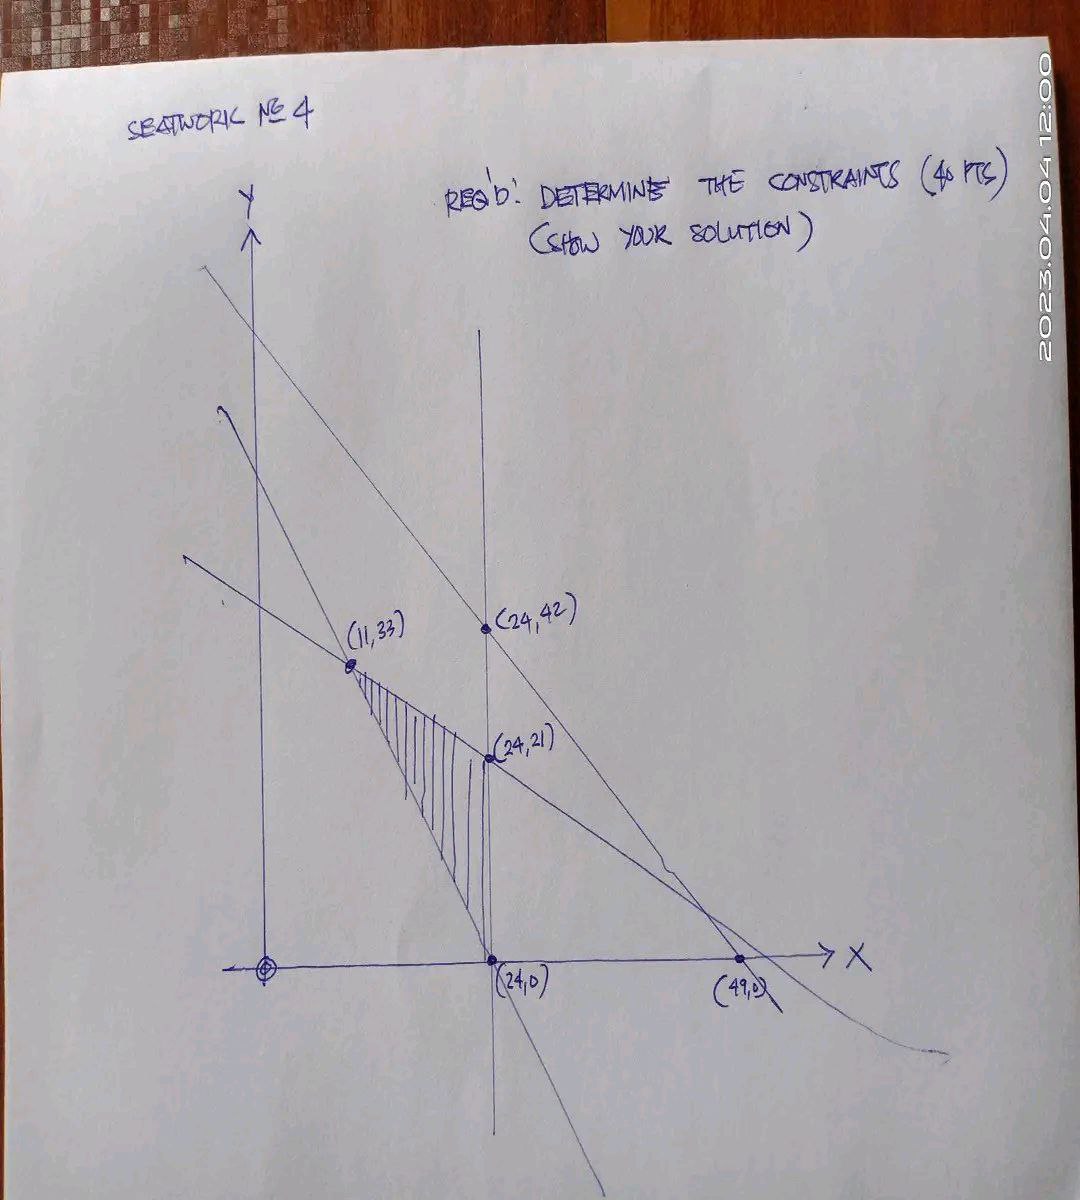 SEATWORK № 4
REQ'D: DETERMINE THE CONSTRAINTS (40 PTS)
(SHOW YOUR SOLUTION)
Y
(24,42)
(11,33)
(24,21)
X
(24,0)
(49,0)
2023.04.04 12:00